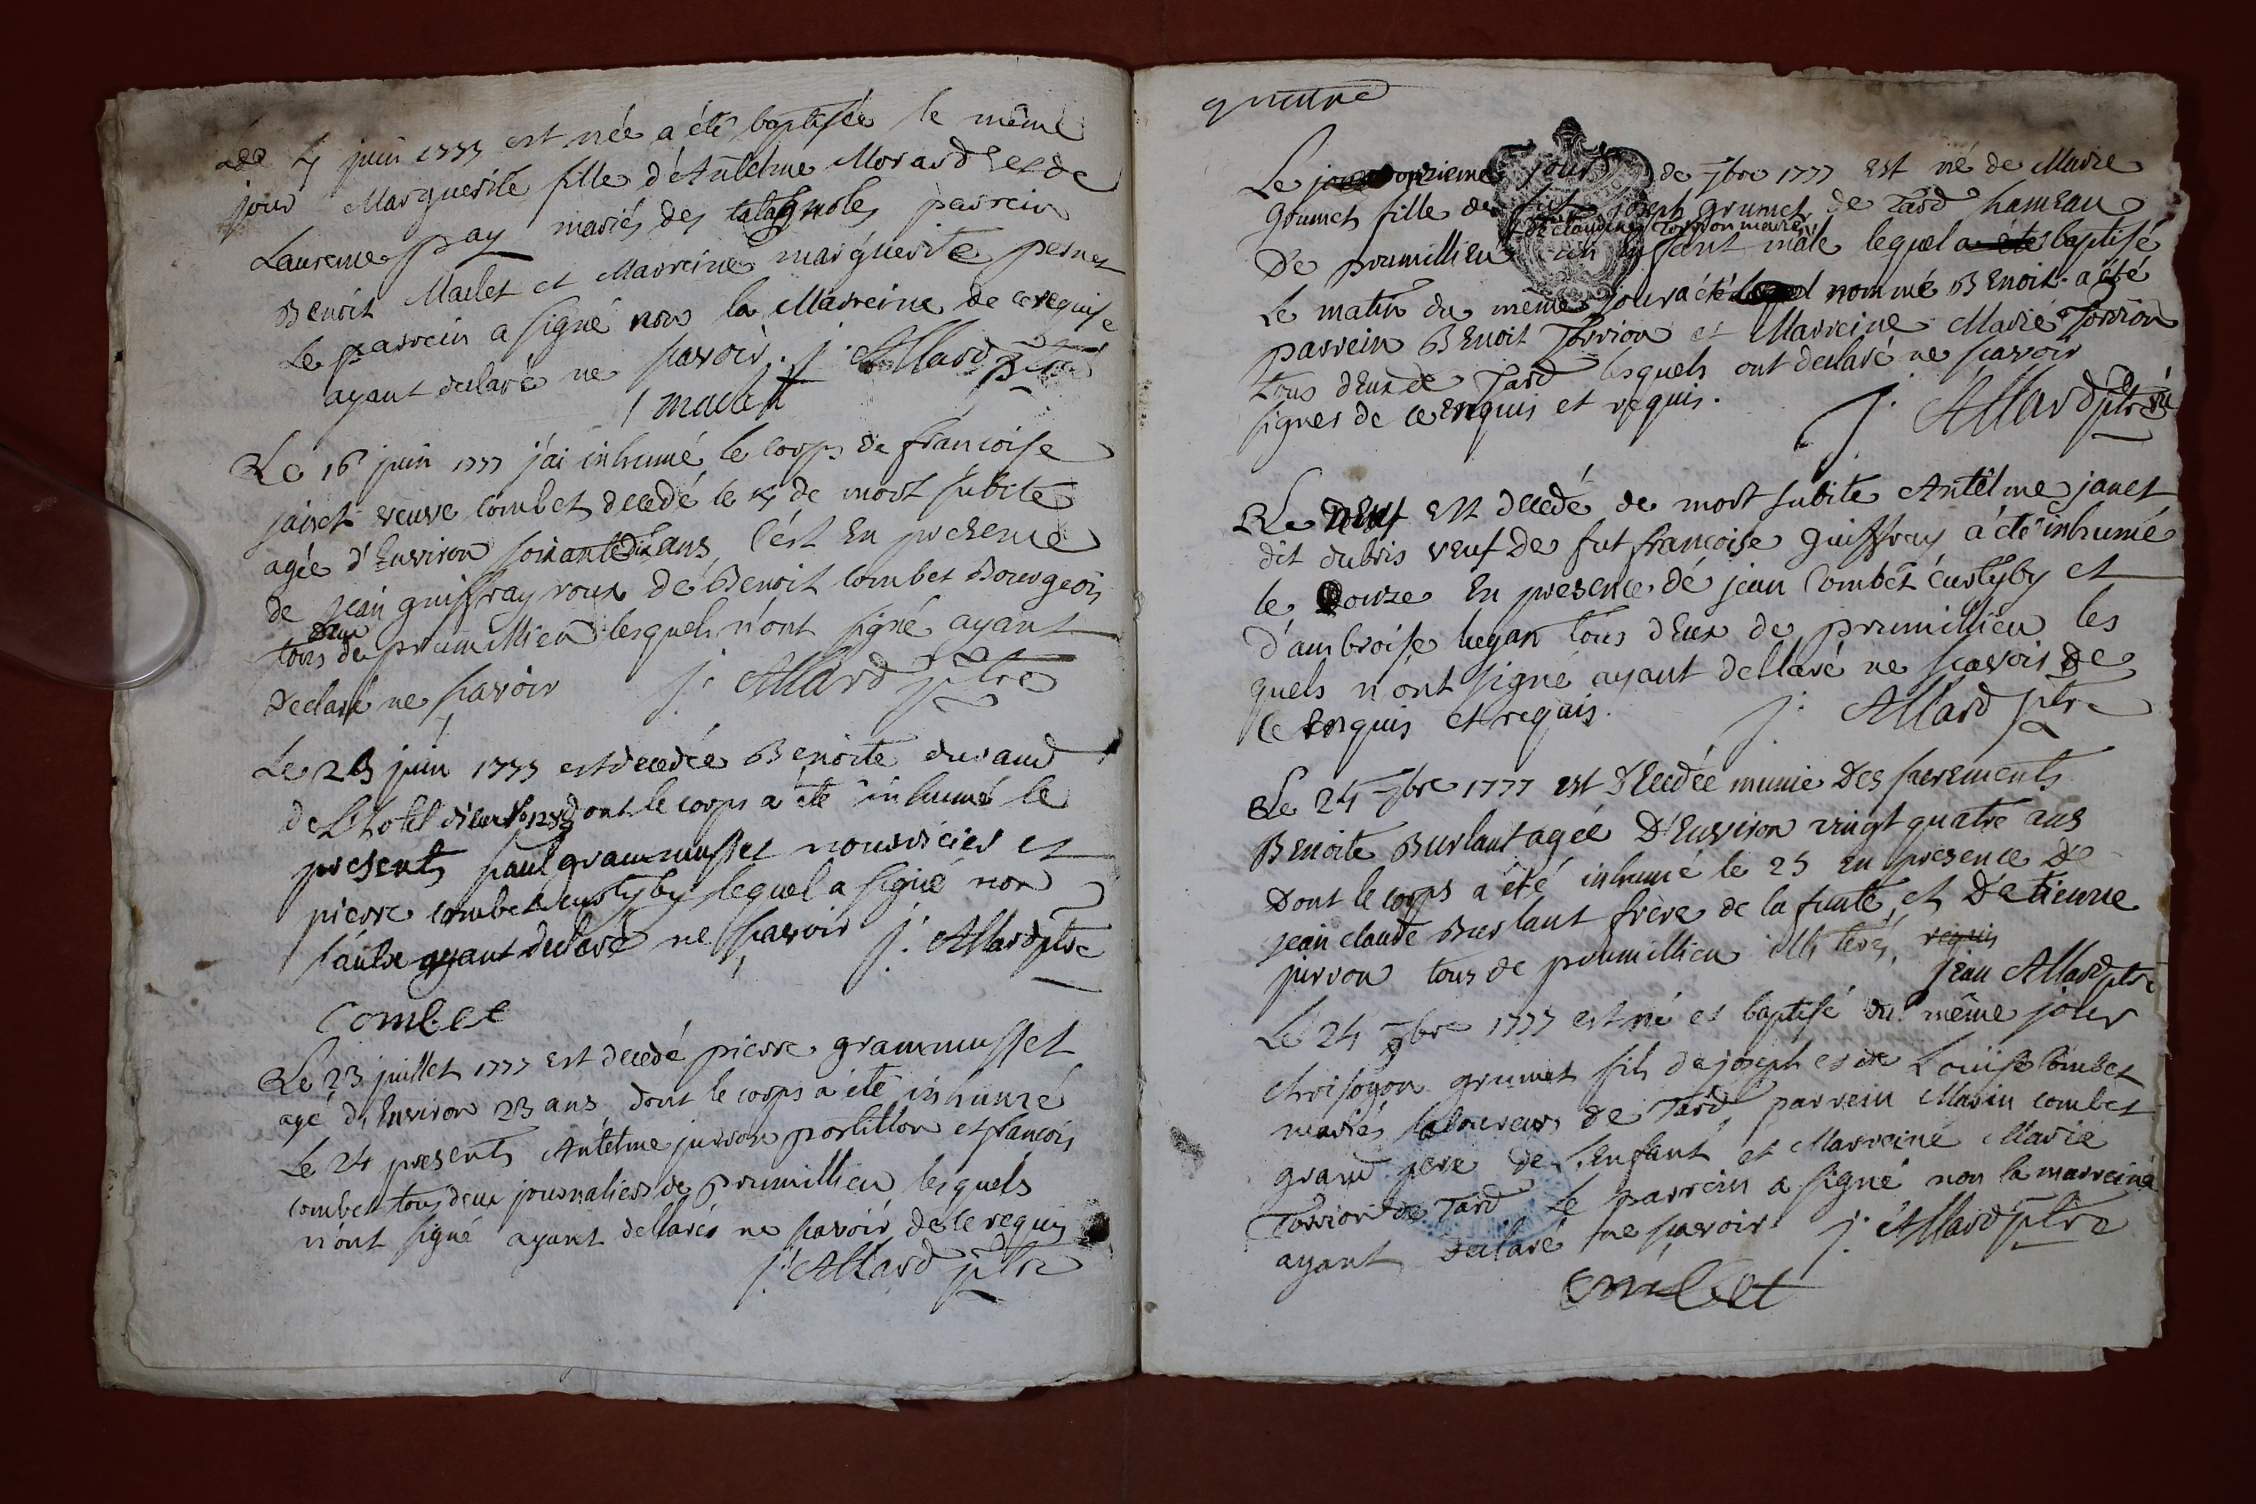 Le 4 juin 1777 est née a été baptisée le même
jour Marguerite fille d'Antelme Morard et de
Laurence pay mariés des talagnoles parrein
Benoit Maclet et Marreine marguerite pernet
Le parrein a signé non la Marreine de ce requise
ayant declaré ne savoir. j. Allard ptre
maclet
Le 16 juin 1777 j'ai inhumé le corps de francoise
janet veuve combet decedé le 15 de mort subite
agée d'Environ soixante dix ans, C'est En presence
de jean guiffray roux de Benoit combet Bourgeois
tous deux de prumillieu lesquels n'ont signé ayant
declaré ne savoir j. Allard ptre
Le 23 juin 1777 est decedée Benoite durand
de L'hotel dieu dont le corps a été inhumé le
presents paul grammusset nourricier et
pierre combet curtyby lequel a signé non
l'autre ayant declaré ne savoir j. Allard ptre
combet
Le 23 juillet 1777 est decedé pierre grammusset
agé d'Environ 23 ans dont le corps a été inhumé
Le 24 presents Antelme jurron portillon et francois
combet tous deux journaliers de prumillieu lesquels
n'ont signé ayant dellarés ne savoir de ce requis
j. Allard ptre
quatre
Le onzieme jour de 7bre 1777 est né de Marie
Grumet fille de fut joseph grumet de Tard hameau
& de claudine Torrion mariés
De prumillieu un enfant male lequel a eté baptisé
Le matin du même jour a été nommé Benoit. a été
parrein Benoit Torrion et Marreine Marie Torrion
tous deux de Tard lesquels ont declaré ne scavoir
signer de ce enquis et requis. j. Allard ptre
Le neuf est decedé de mort subite Antelme janet
dit dubois veuf de fut francoise guiffray a été inhumé
le douze En presence de jean Combet curtyby et
d'ambroise lugan tous deux de prumillieu les
quels n'ont signé ayant dellaré ne scavoir de
ce enquis et requis. j. Allard ptre
Le 24 7bre 1777 est decedée munie des sacrements
Benoite Burlant agée d'Environ vingt quatre ans
Dont le corps a été inhumé le 25 en presence de
jean claude Burlant frère de la funte et d'etienne
jurron tous de prumillieu illiterés, requis
jean Allard ptre
Le 24 9bre 1777 est né et baptisé du même jour
chrisogon grumet fils de joseph et de Louise Combet
mariés laboureurs de Tard parrein Marin combet
grand pere de l'Enfant et Marreine Marie
Torrion de Tard Le parrein a signé non la marreine
ayant declaré ne savoir j. Allard ptre
combet